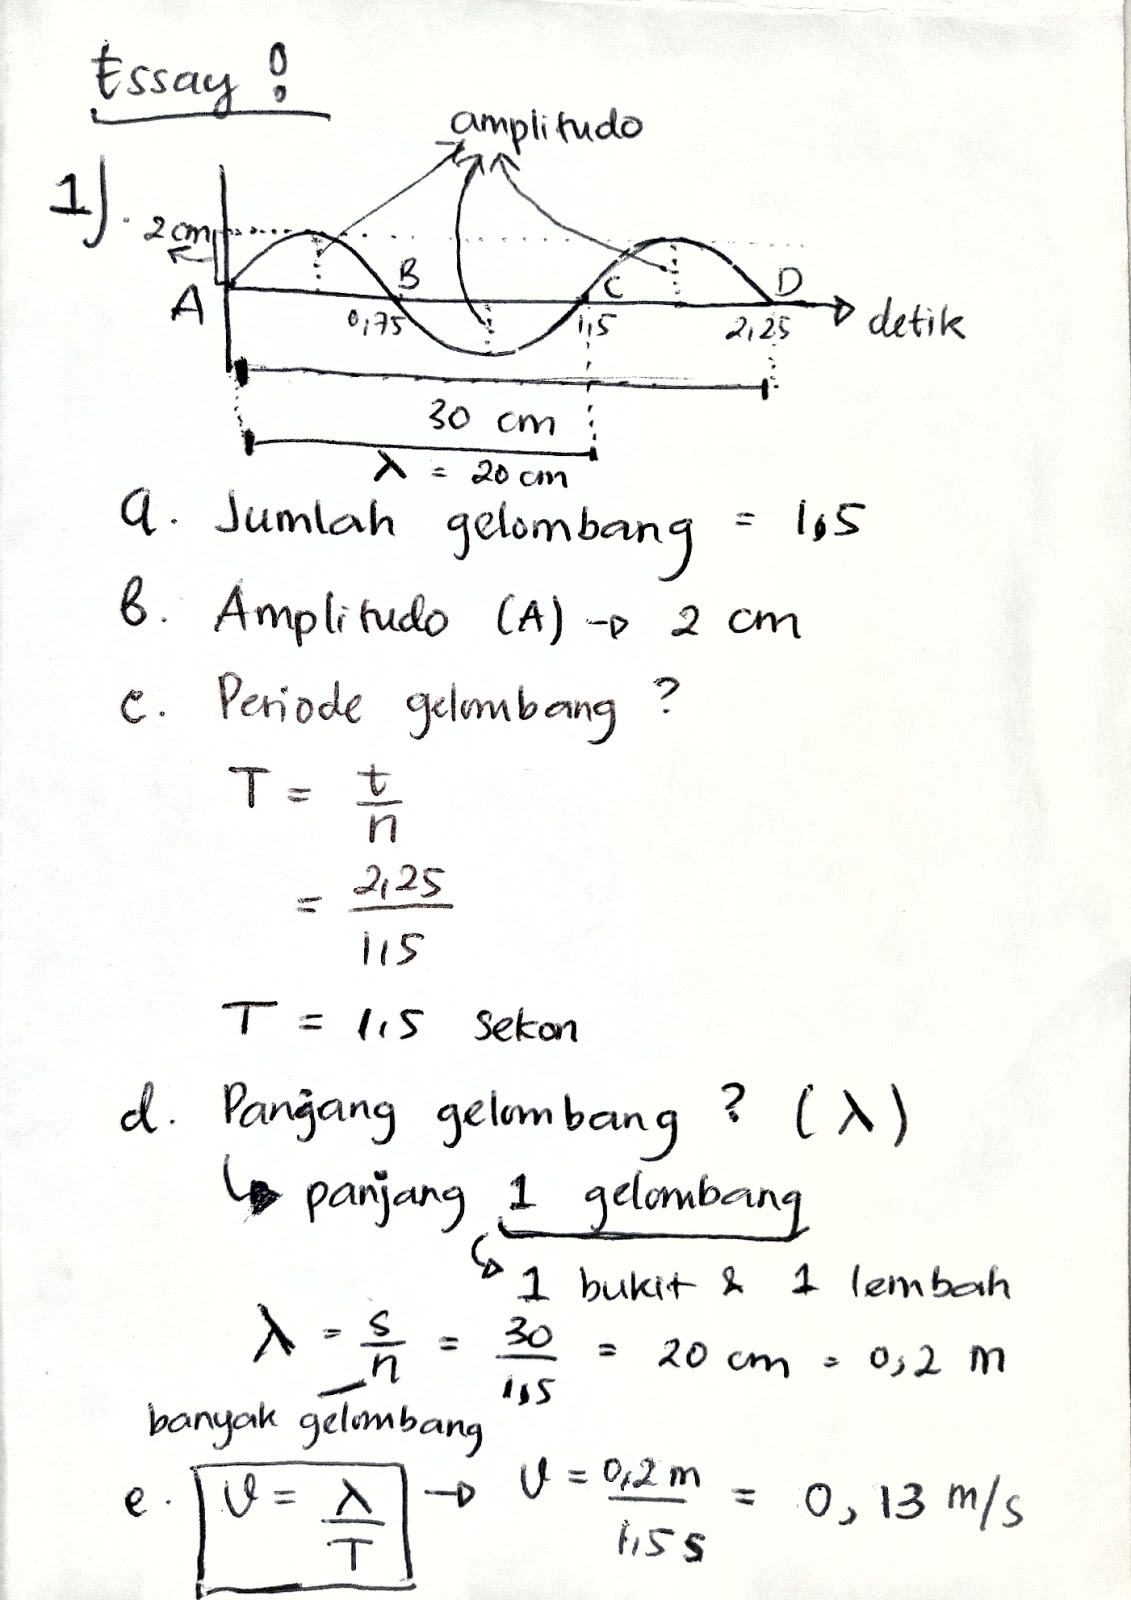 Essay !
amplitudo
1).
2 cm
A
B
C
D
0,75
1,5
2,25
detik
30 cm
λ = 20 cm
a. Jumlah gelombang = 1,5
b. Amplitudo (A) → 2 cm
c. Periode gelombang ?
T = t/n
= 2,25/1,5
T = 1,5 sekon
d. Panjang gelombang ? (λ)
↳ panjang 1 gelombang
↳ 1 bukit & 1 lembah
λ = s/n = 30/1,5 = 20 cm = 0,2 m
banyak gelombang
e. v = λ/T → v = 0,2 m/1,5 s = 0,13 m/s